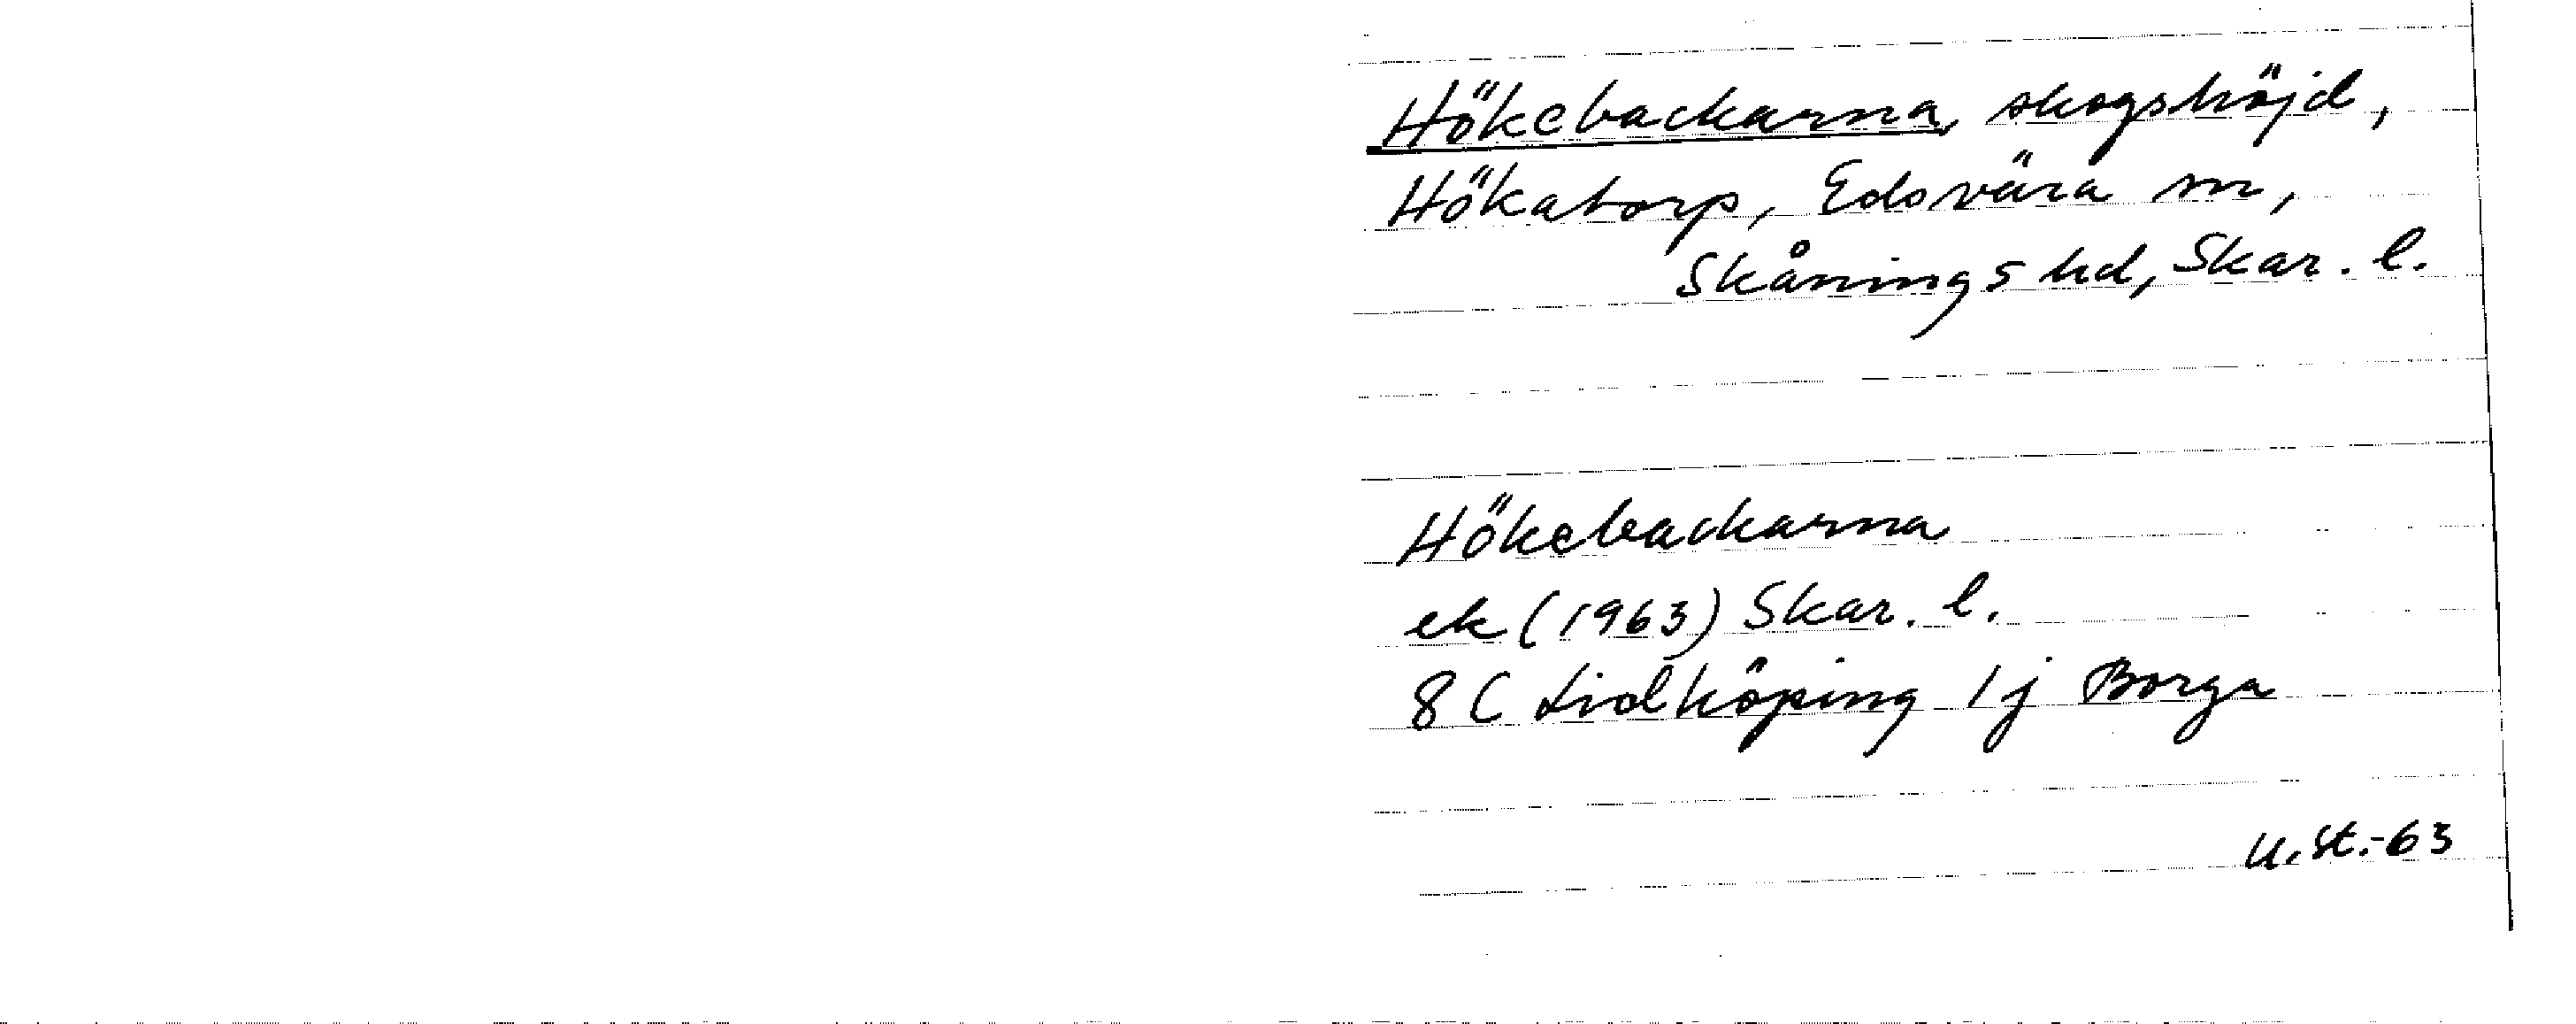 Hökebackarna, skogshöjd,
Hökatorp, Edsvära sn,
Skånings hd, Skar. l.
Hökebackarna
ek (1963) Skar. l.
8 C Lidköping 1j Borga
U.St.-63